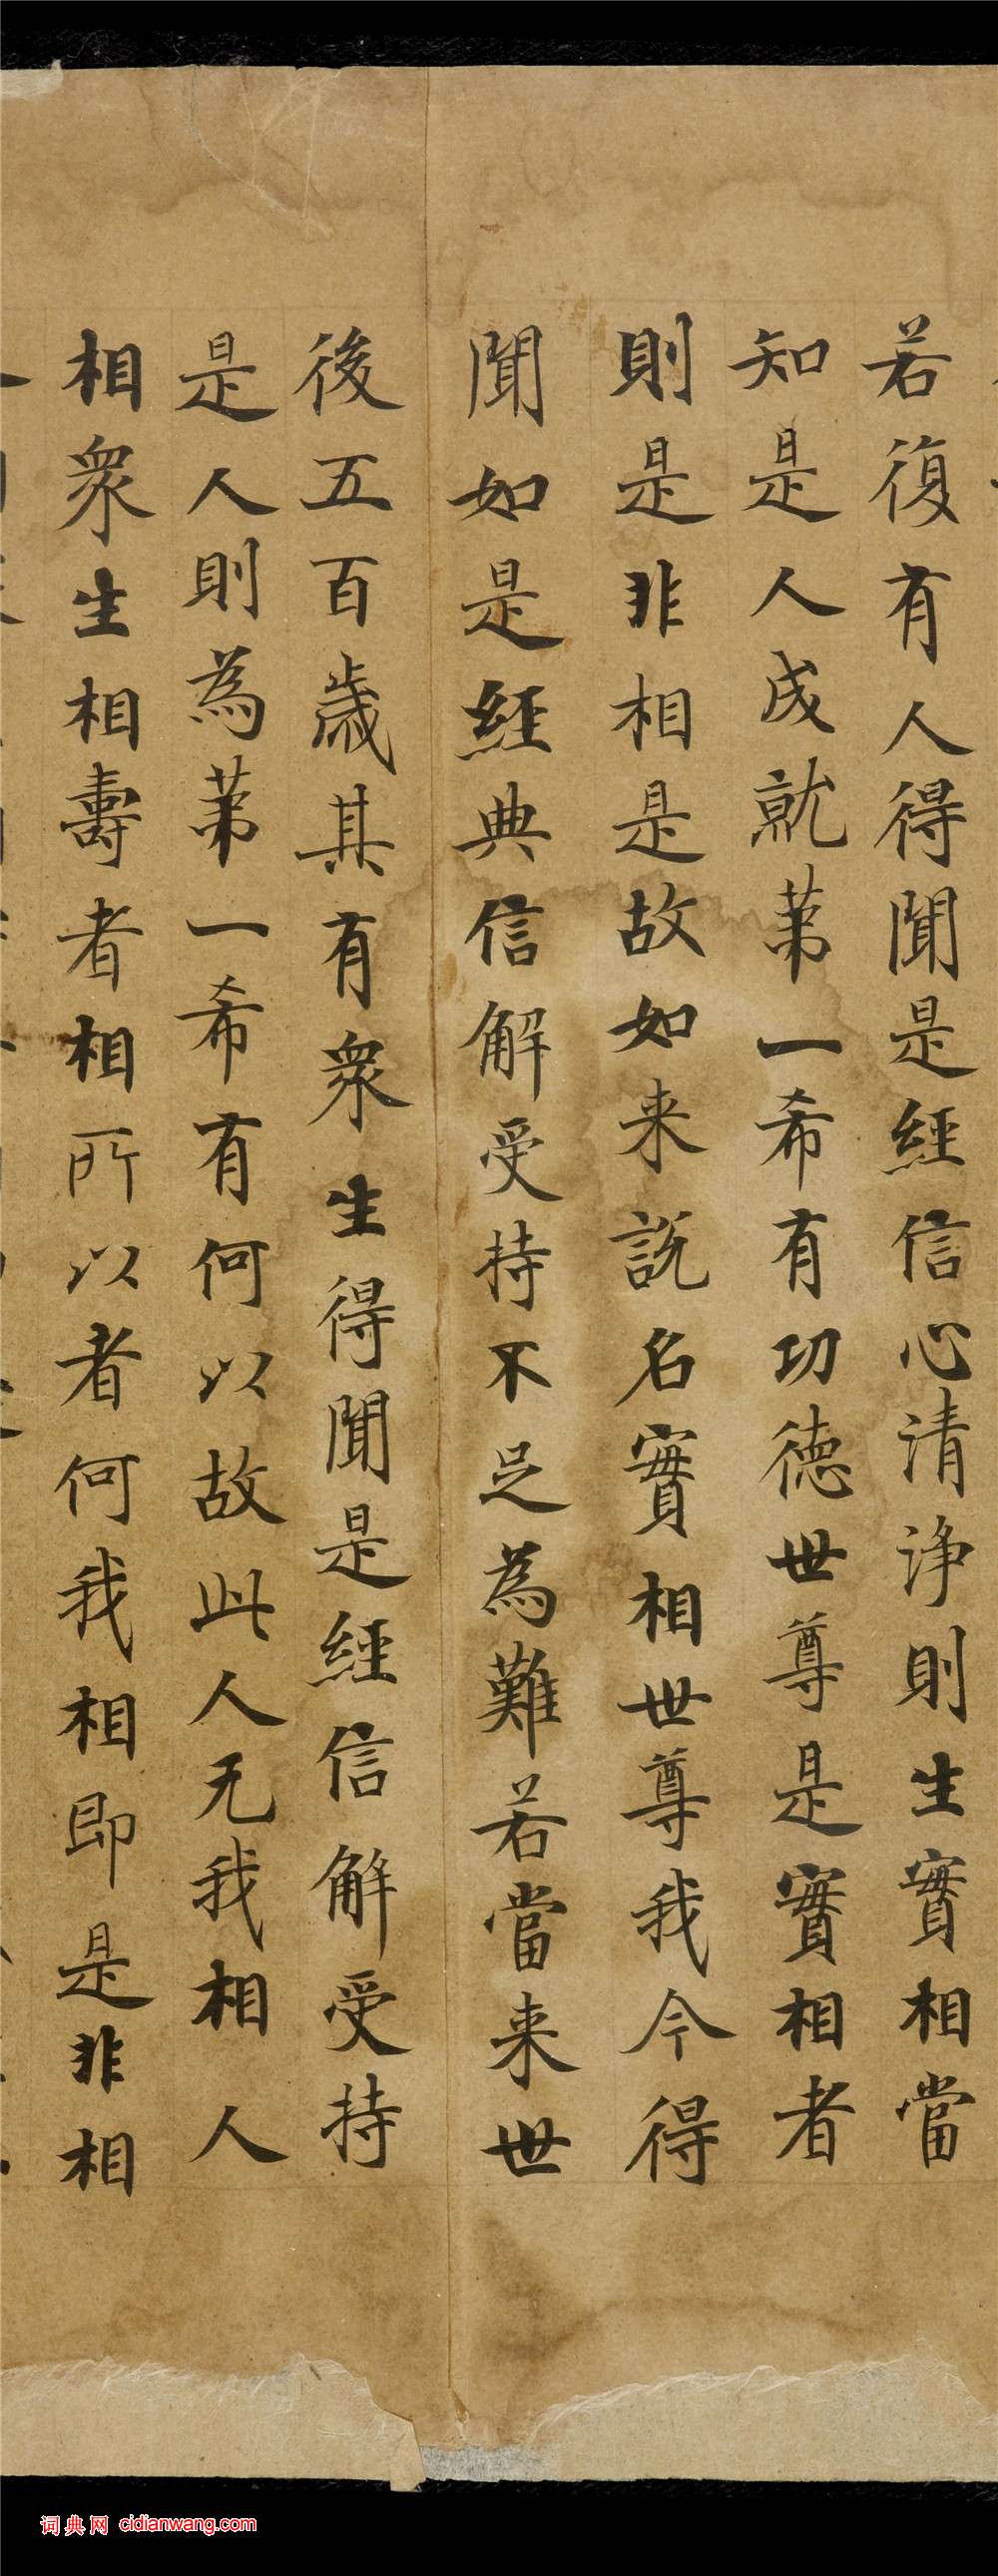 若復有人得聞是經信心清淨則生實相當
知是人成就第一希有功德世尊是實相者
則是非相是故如来說名實相世尊我今得
聞如是經典信解受持不足為難若當来世
後五百歲其有衆生得聞是經信解受持
是人則為第一希有何以故此人无我相人
相衆生相壽者相所以者何我相即是非相
词典网 cidianwang.com